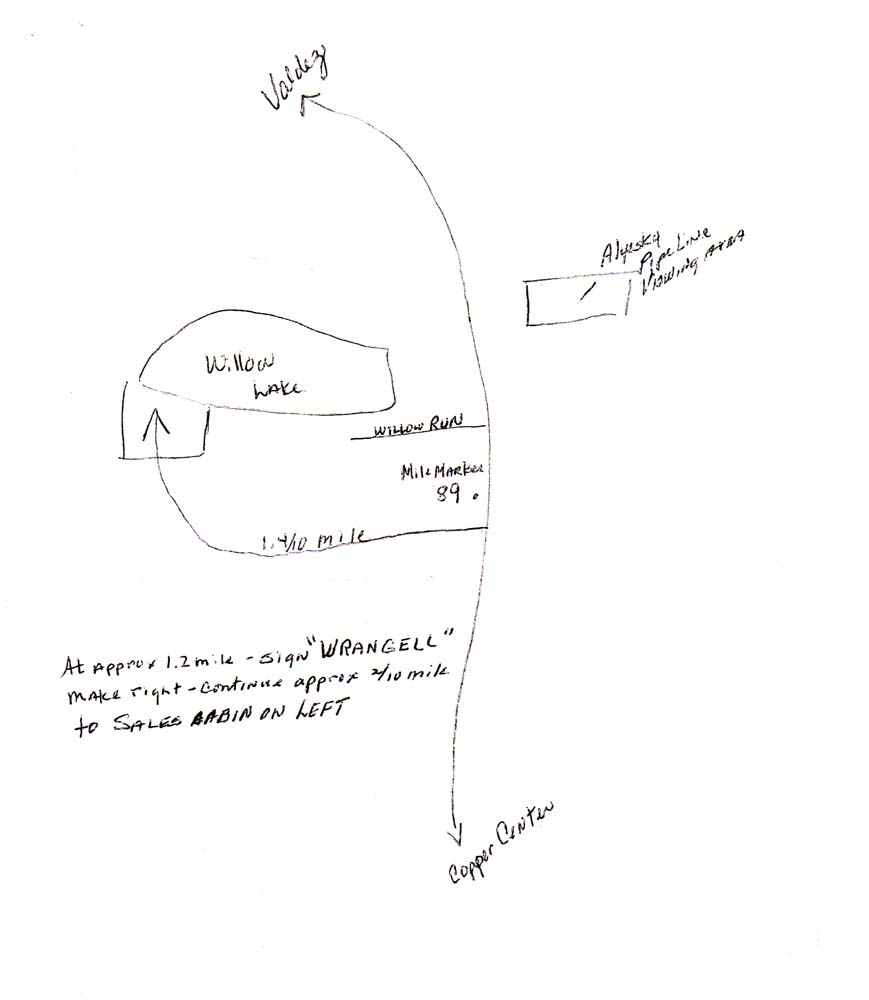 Valdez
Alyeska
PipeLine
Viewing Area
Willow
LAKE
WILLOW RUN
Mile Marker
89
1.4/10 mile
At Approx 1.2 mile - sign "WRANGELL"
MAKE right - continue approx 2/10 mile
to SALES CABIN ON LEFT
Copper Center